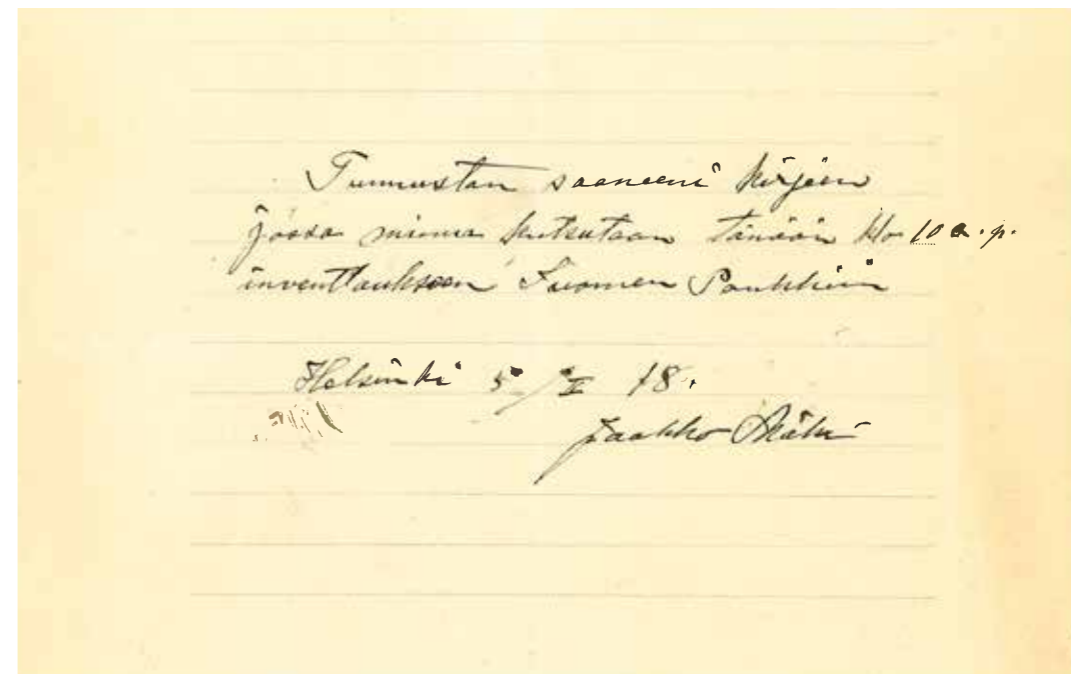 Tunnustan saaneeni kirjeen
jossa minua kutsutaan tänään klo 10 a.p.
inventtaukseen Suomen Pankkiin
Helsinki 5/II 18.
Jaakko Mäki